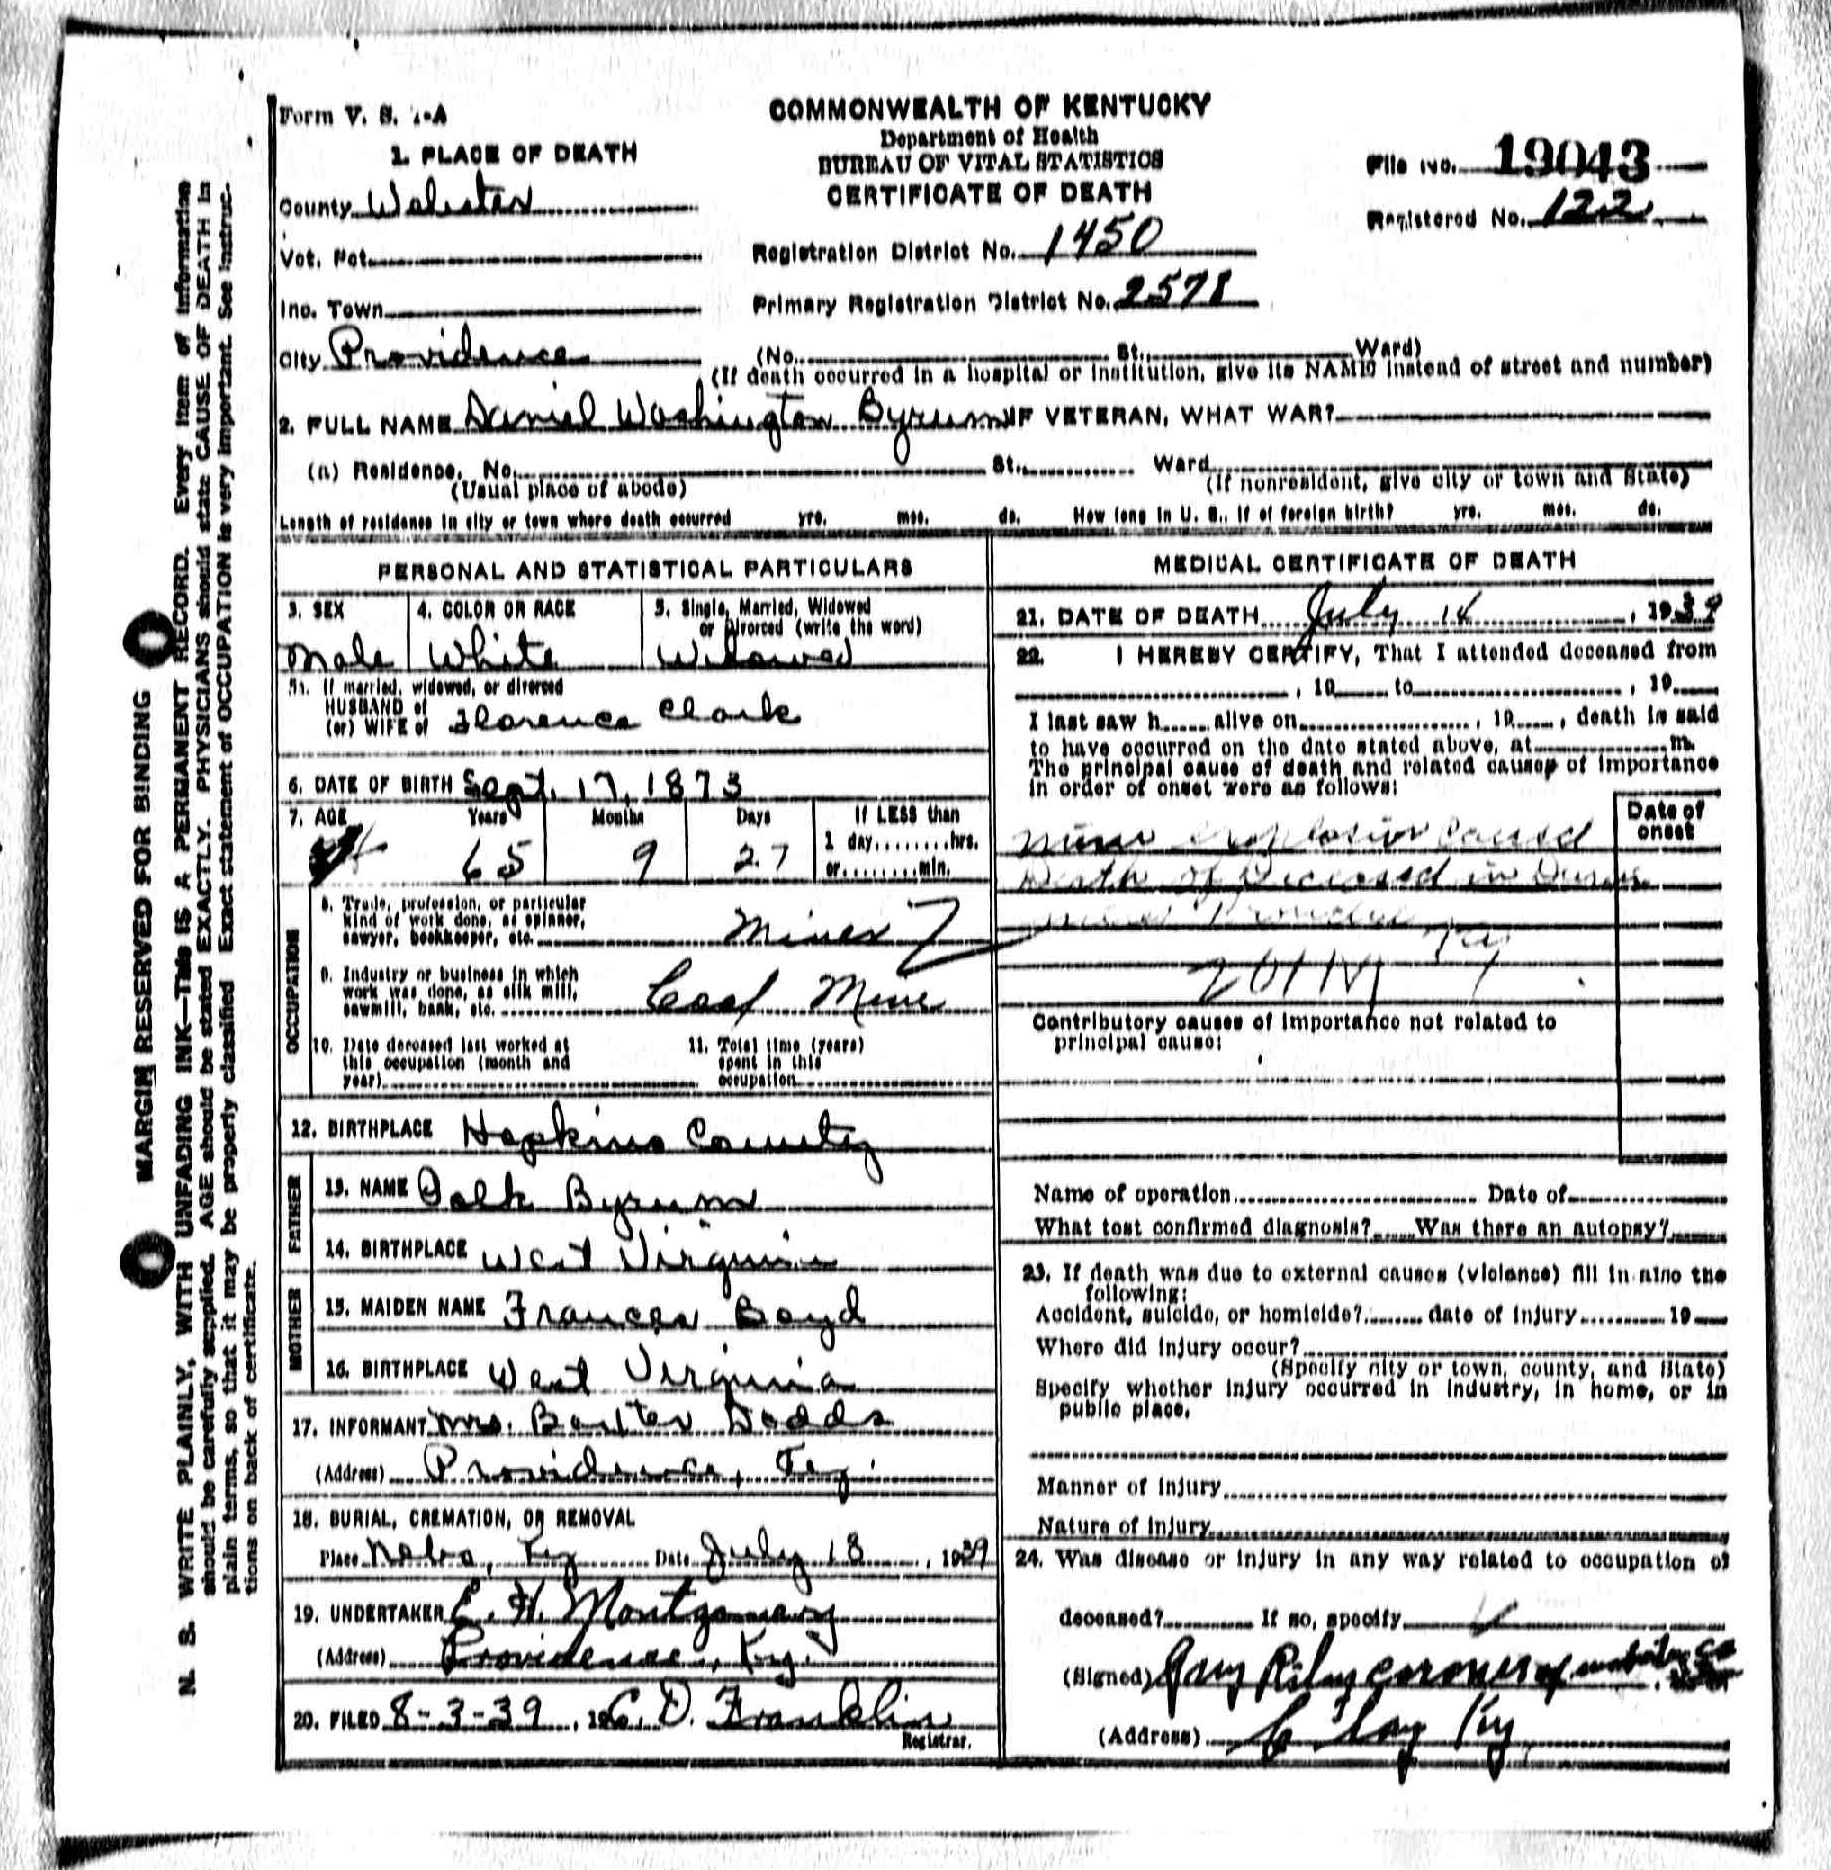 Form V. S. 1-A
COMMONWEALTH OF KENTUCKY
Department of Health
BUREAU OF VITAL STATISTICS
CERTIFICATE OF DEATH
File No. 19043
Registered No. 122
1. PLACE OF DEATH
County Webster
Vot. Pct.
Inc. Town
City Providence
Registration District No. 1450
Primary Registration District No. 2578
(No. St., Ward)
(If death occurred in a hospital or institution, give its NAME instead of street and number)
2. FULL NAME Daniel Washington Byrum IF VETERAN, WHAT WAR?
(a) Residence. No. St., Ward
(Usual place of abode) (If nonresident, give city or town and State)
Length of residence in city or town where death occurred yrs. mos. ds. How long in U. S., if of foreign birth? yrs. mos. ds.
PERSONAL AND STATISTICAL PARTICULARS
3. SEX 4. COLOR OR RACE 5. Single, Married, Widowed
or Divorced (write the word)
Male White Widowed
5a. If married, widowed, or divorced
HUSBAND of
(or) WIFE of Florence Clark
6. DATE OF BIRTH Sept. 17, 1873
7. AGE Years Months Days If LESS than
1 day........hrs.
65 9 27 or........min.
OCCUPATION
8. Trade, profession, or particular
kind of work done, as spinner,
sawyer, bookkeeper, etc. Miner
9. Industry or business in which
work was done, as silk mill,
sawmill, bank, etc. Coal Mine
10. Date deceased last worked at
this occupation (month and
year)
11. Total time (years)
spent in this
occupation
12. BIRTHPLACE Hopkins County
FATHER
13. NAME Polk Byrum
14. BIRTHPLACE West Virginia
MOTHER
15. MAIDEN NAME Frances Boyd
16. BIRTHPLACE West Virginia
17. INFORMANT Mrs. Baxter Dodds
(Address) Providence, Ky.
18. BURIAL, CREMATION, OR REMOVAL
Place Nebo, Ky Date July 18, 1939
19. UNDERTAKER E. H. Montgomery
(Address) Providence, Ky.
20. FILED 8-3-39, 19 C. D. Franklin
Registrar.
MEDICAL CERTIFICATE OF DEATH
21. DATE OF DEATH July 14, 1939
22. I HEREBY CERTIFY, That I attended deceased from
, 19 to , 19
I last saw h alive on , 19 , death is said
to have occurred on the date stated above, at m.
The principal cause of death and related causes of importance
in order of onset were as follows:
Date of
onset
Mine explosion caused
Death of Deceased in
Ky
Contributory causes of importance not related to
principal cause:
Name of operation Date of
What test confirmed diagnosis? Was there an autopsy?
23. If death was due to external causes (violence) fill in also the
following:
Accident, suicide, or homicide? date of injury 19
Where did injury occur?
(Specify city or town, county, and State)
Specify whether injury occurred in industry, in home, or in
public place.
Manner of injury
Nature of injury
24. Was disease or injury in any way related to occupation of
deceased? If so, specify
(Signed) Riley coroner of Webster Co
(Address) Clay Ky
MARGIN RESERVED FOR BINDING
N. B. WRITE PLAINLY, WITH UNFADING INK—This IS A PERMANENT RECORD. Every item of information
should be carefully supplied. AGE should be stated EXACTLY. PHYSICIANS should state CAUSE OF DEATH in
plain terms, so that it may be properly classified. Exact statement of OCCUPATION is very important. See instruc-
tions on back of certificate.